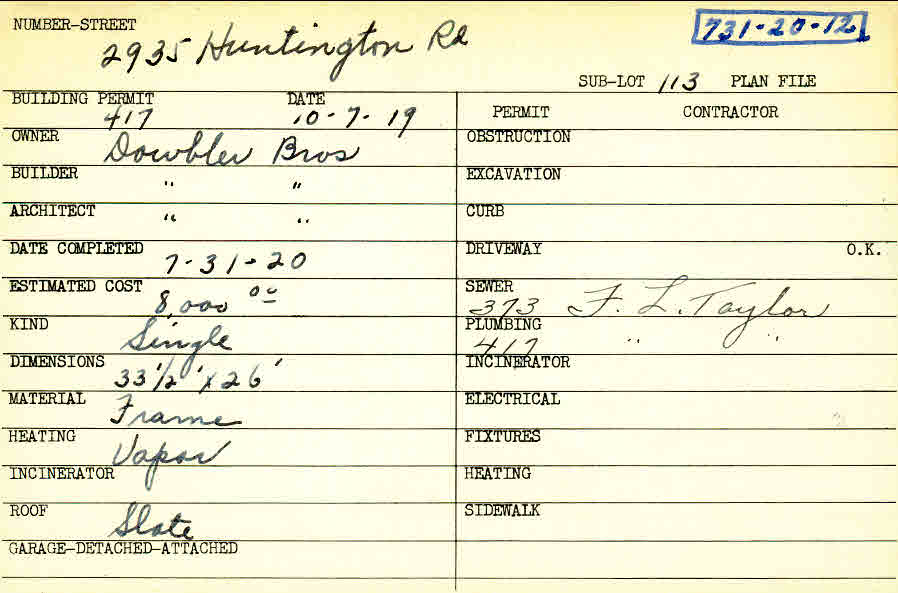 NUMBER-STREET
2935 Huntington Rd
731-20-12
SUB-LOT 113 PLAN FILE
BUILDING PERMIT DATE
417 10-7-19
OWNER
Dowbler Bros
BUILDER
" "
ARCHITECT
" "
DATE COMPLETED
7-31-20
ESTIMATED COST
8,000 00
KIND
Single
DIMENSIONS
33 1/2' x 26'
MATERIAL
Frame
HEATING
Vapor
INCINERATOR
ROOF
Slate
GARAGE-DETACHED-ATTACHED
PERMIT CONTRACTOR
OBSTRUCTION
EXCAVATION
CURB
DRIVEWAY O.K.
SEWER
373 F. L. Taylor
PLUMBING
417 " "
INCINERATOR
ELECTRICAL
FIXTURES
HEATING
SIDEWALK